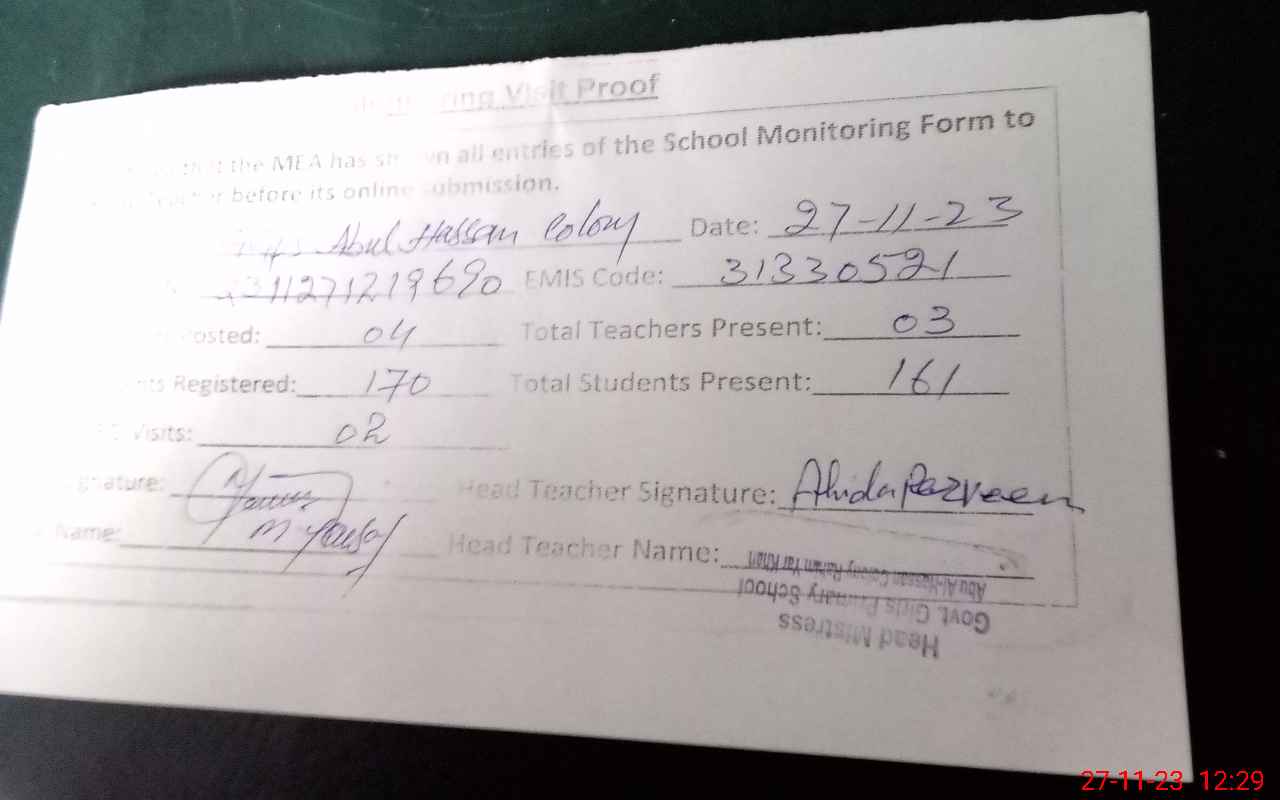 Visit Proof
the MEA has shown all entries of the School Monitoring Form to
before its online submission.
Abul Hassan Colony Date: 27-11-23
EMIS Code: 31330521
Posted: 04 Total Teachers Present: 03
Registered: 170 Total Students Present: 161
Visits: 02
Signature: Head Teacher Signature: Abida Parveen
Name: M Yousaf Head Teacher Name:
Head Mistress
Govt. Girls Primary School
Abu Al-Hassan Colony Rahim Yar Khan
27-11-23 12:29